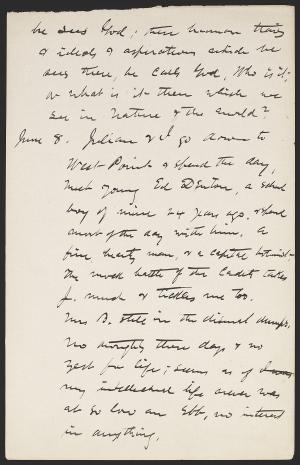 he sees God; these human things
& ideals & aspirations which he
sees there, he calls God, Who is it;
or what is it then which we
see in nature & the world?
June 8. Julian & I go down to
West Point & spend the day,
meet young Ed Denton, a school
boy of mine 24 years ago. & spend
most of the day with him. A
fine hearty man, & a capital botanist.
The mock battle of the Cadets takes
J. much & tickles me too.
Mrs B. still in the dismal dumps.
No thoughts these days & no
zest for life; seems as if
my intellectual life never was
at so low an ebb, no interest
in anything.